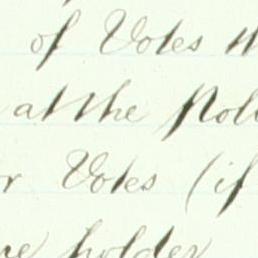 of Votes
at the Poll
Votes (if
holder